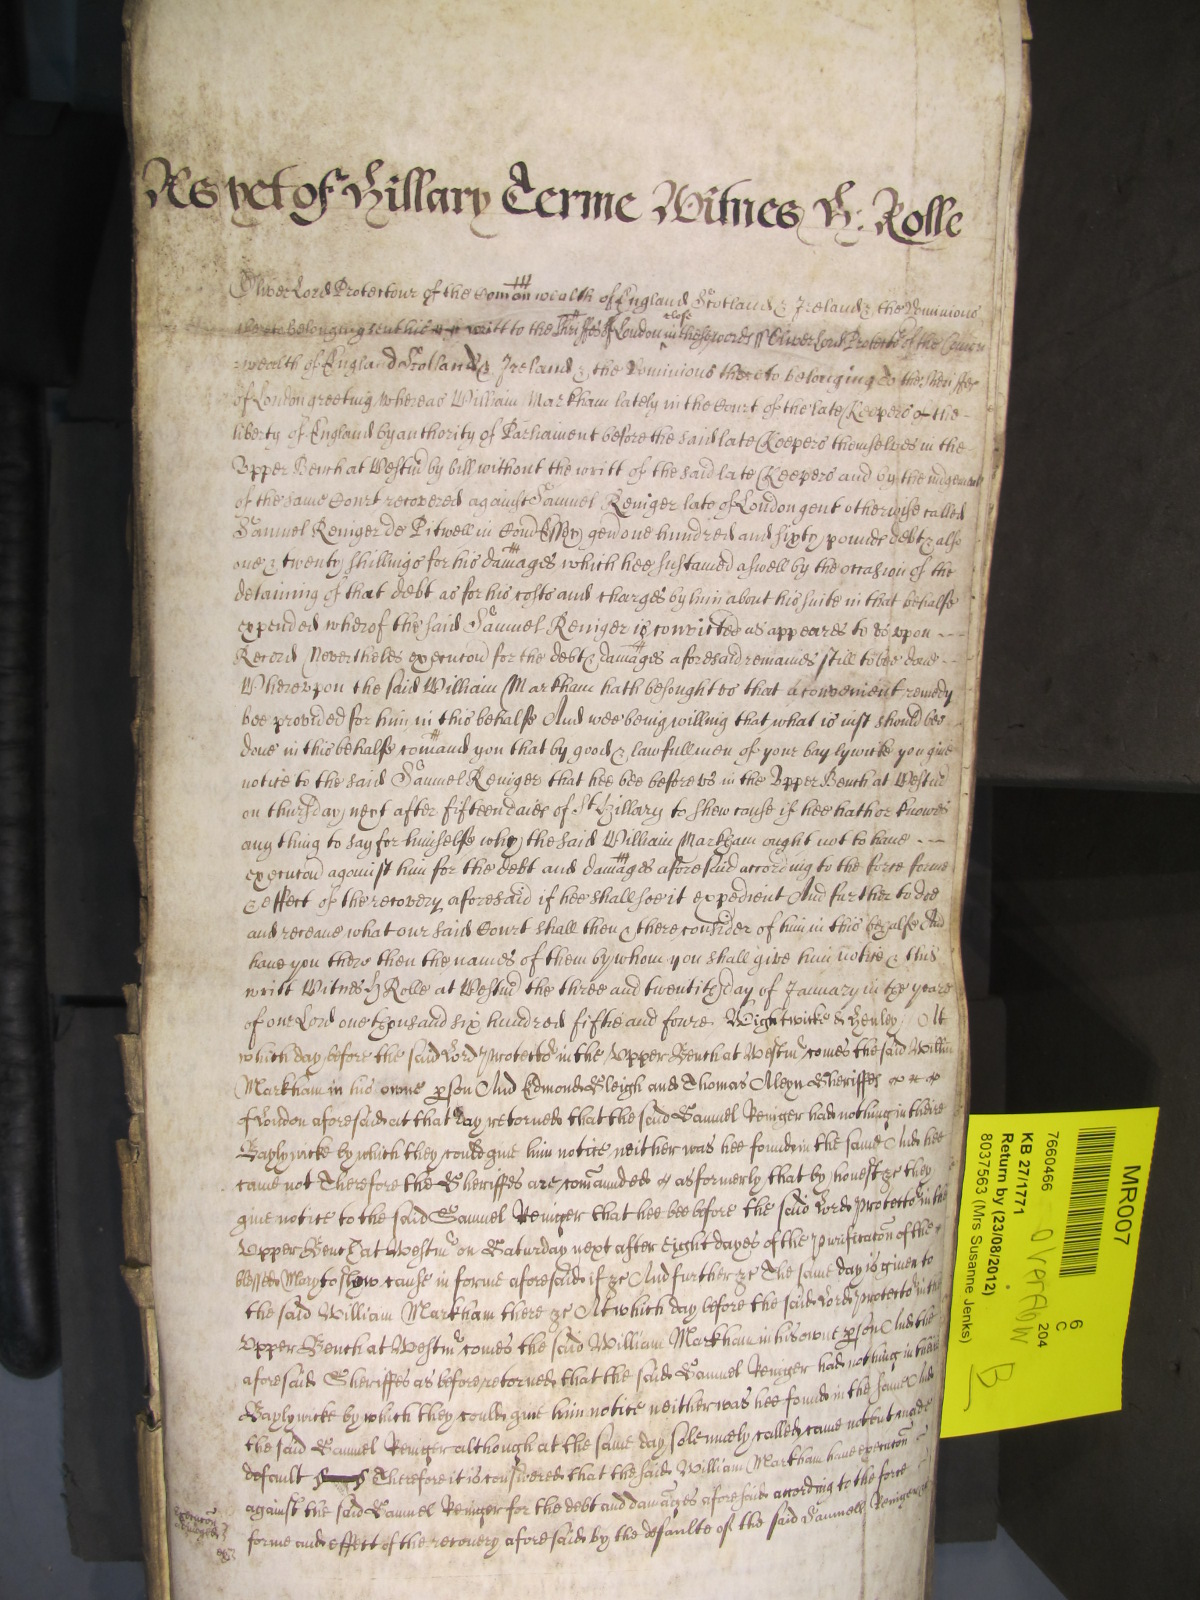 As yet of Hillary Terme Witnes H: Rolle
Oliver Lord Protectour of the Comōnwealth of England Scotland & Ireland & the Dominions
thereto belonging sent his writt to the Sheriffes of London close in these words ss Oliver Lord Protector of the Comon
=wealth of England Scotland & Ireland & the Dominions thereto belonging To the Sheriffes
of London greeting whereas William Markham lately in the Court of the late Keepers of the -
liberty of England by authority of Parliament before the said late Keepers themselves in the
Vpper Bench at Westm̄ by bill without the writt of the said late Keepers and by the iudgement
of the same Court recovered against Samuel Reniger late of London gent otherwise called
Samuel Reniger de Pitwell in Com̄ Essex gen̄ one hundred and sixty pounds debt & also
one & twenty shillings for his dam̄ages which hee sustained aswell by the occasion of the
detaining of that debt as for his costs and charges by him about his suite in that behalfe
expended wherof the said Samuel Reniger is convicted as appeares to vs vpon ---
Record Nevertheles execucōn for the debt & dam̄ages aforesaid remaines still to bee done --
Wherevpon the said William Markham hath besought vs that a convenient remedy
bee provided for him in this behalfe And wee being willing that what is iust should bee
done in this behalfe com̄and you that by good & lawfull men of your baylywicke you give
notice to the said Samuel Reniger that hee bee before vs in the Vpper Bench at Westm̄
on thursday next after fifteen daies of St Hillary to shew cause if hee hath or knowes
any thing to say for himselfe why the said William Markham ought not to have ---
execucōn against him for the debt and dam̄ages aforesaid according to the force forme
& effect of the recovery aforesaid if hee shall see it expedient And further to doe
and receave what our said Court shall then & there consider of him in this behalfe And
have you there then the names of them by whom you shall give him notice & this
writt Witnes H Rolle at Westm̄ the three and twentith day of January in the yeare
of our Lord one thousand six hundred fiftie and foure Wightwicke & Henley At
which day before the said Lord Protector in the Vpper Bench at Westm̄ comes the said Willm̄
Markham in his owne ꝑson And Edmond Sleigh and Thomas Aleyn Sheriffes
of London aforesaid at that day retorned that the said Samuel Reniger had nothing in theire
Baylywicke by which they could give him notice neither was hee found in the same And hee
came not Therefore the Sheriffes are com̄anded as formerly that by honest &c they
give notice to the said Samuel Reniger that hee bee before the said Lord Protector in the
Vpper Bench at Westm̄ on Saturday next after Eight dayes of the purificacōn of the
blessed Mary to shew cause in forme aforesaid if &c And further &c The same day is given to
the said William Markham there &c At which day before the said Lord Protector in the
Vpper Bench at Westm̄ comes the said William Markham in his owne ꝑson And the
aforesaid Sheriffes as before retorned that the said Samuel Reniger had nothing in their
Baylywicke by which they could give him notice neither was hee found in the same And
the said Samuel Reniger although at the same day solemnely called came not but made
default Therefore it is considered that the said William Markham have execucōn
against the said Samuel Reniger for the debt and damages aforesaid according to the force
forme and effect of the recovery aforesaid by the defaulte of the said Samuell Reniger &c
Execucōn
adiudged
MR007
6
C
204
7660466
KB 27/1771
Return by (23/08/2012)
8037563 (Mrs Susanne Jenks)
B